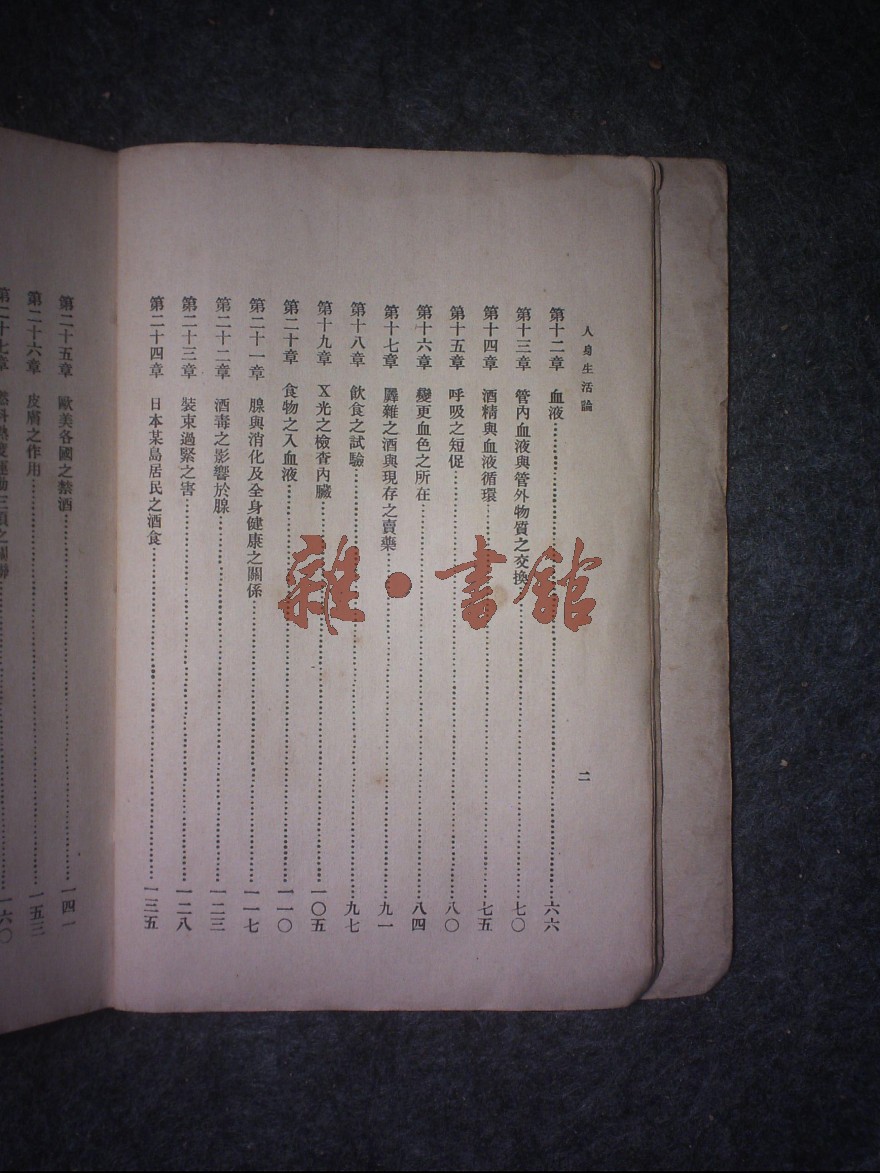 人身生活論
二
第十二章 血液……六六
第十三章 管內血液與管外物質之交換……七〇
第十四章 酒精與血液循環……七五
第十五章 呼吸之短促……八〇
第十六章 變更血色之所在……八四
第十七章 羼雜之酒與現存之賣藥……九一
第十八章 飲食之試驗……九七
第十九章 X光之檢查內臟……一〇五
第二十章 食物之入血液……一一〇
第二十一章 腺與消化及全身健康之關係……一一七
第二十二章 酒毒之影響於腺……一二三
第二十三章 裝束過緊之害……一二八
第二十四章 日本某島居民之酒食……一三五
第二十五章 歐美各國之禁酒……一四一
第二十六章 皮膚之作用……一五三
第二十七章 燃料熱度運動三項之關聯……一六〇
雜·書館